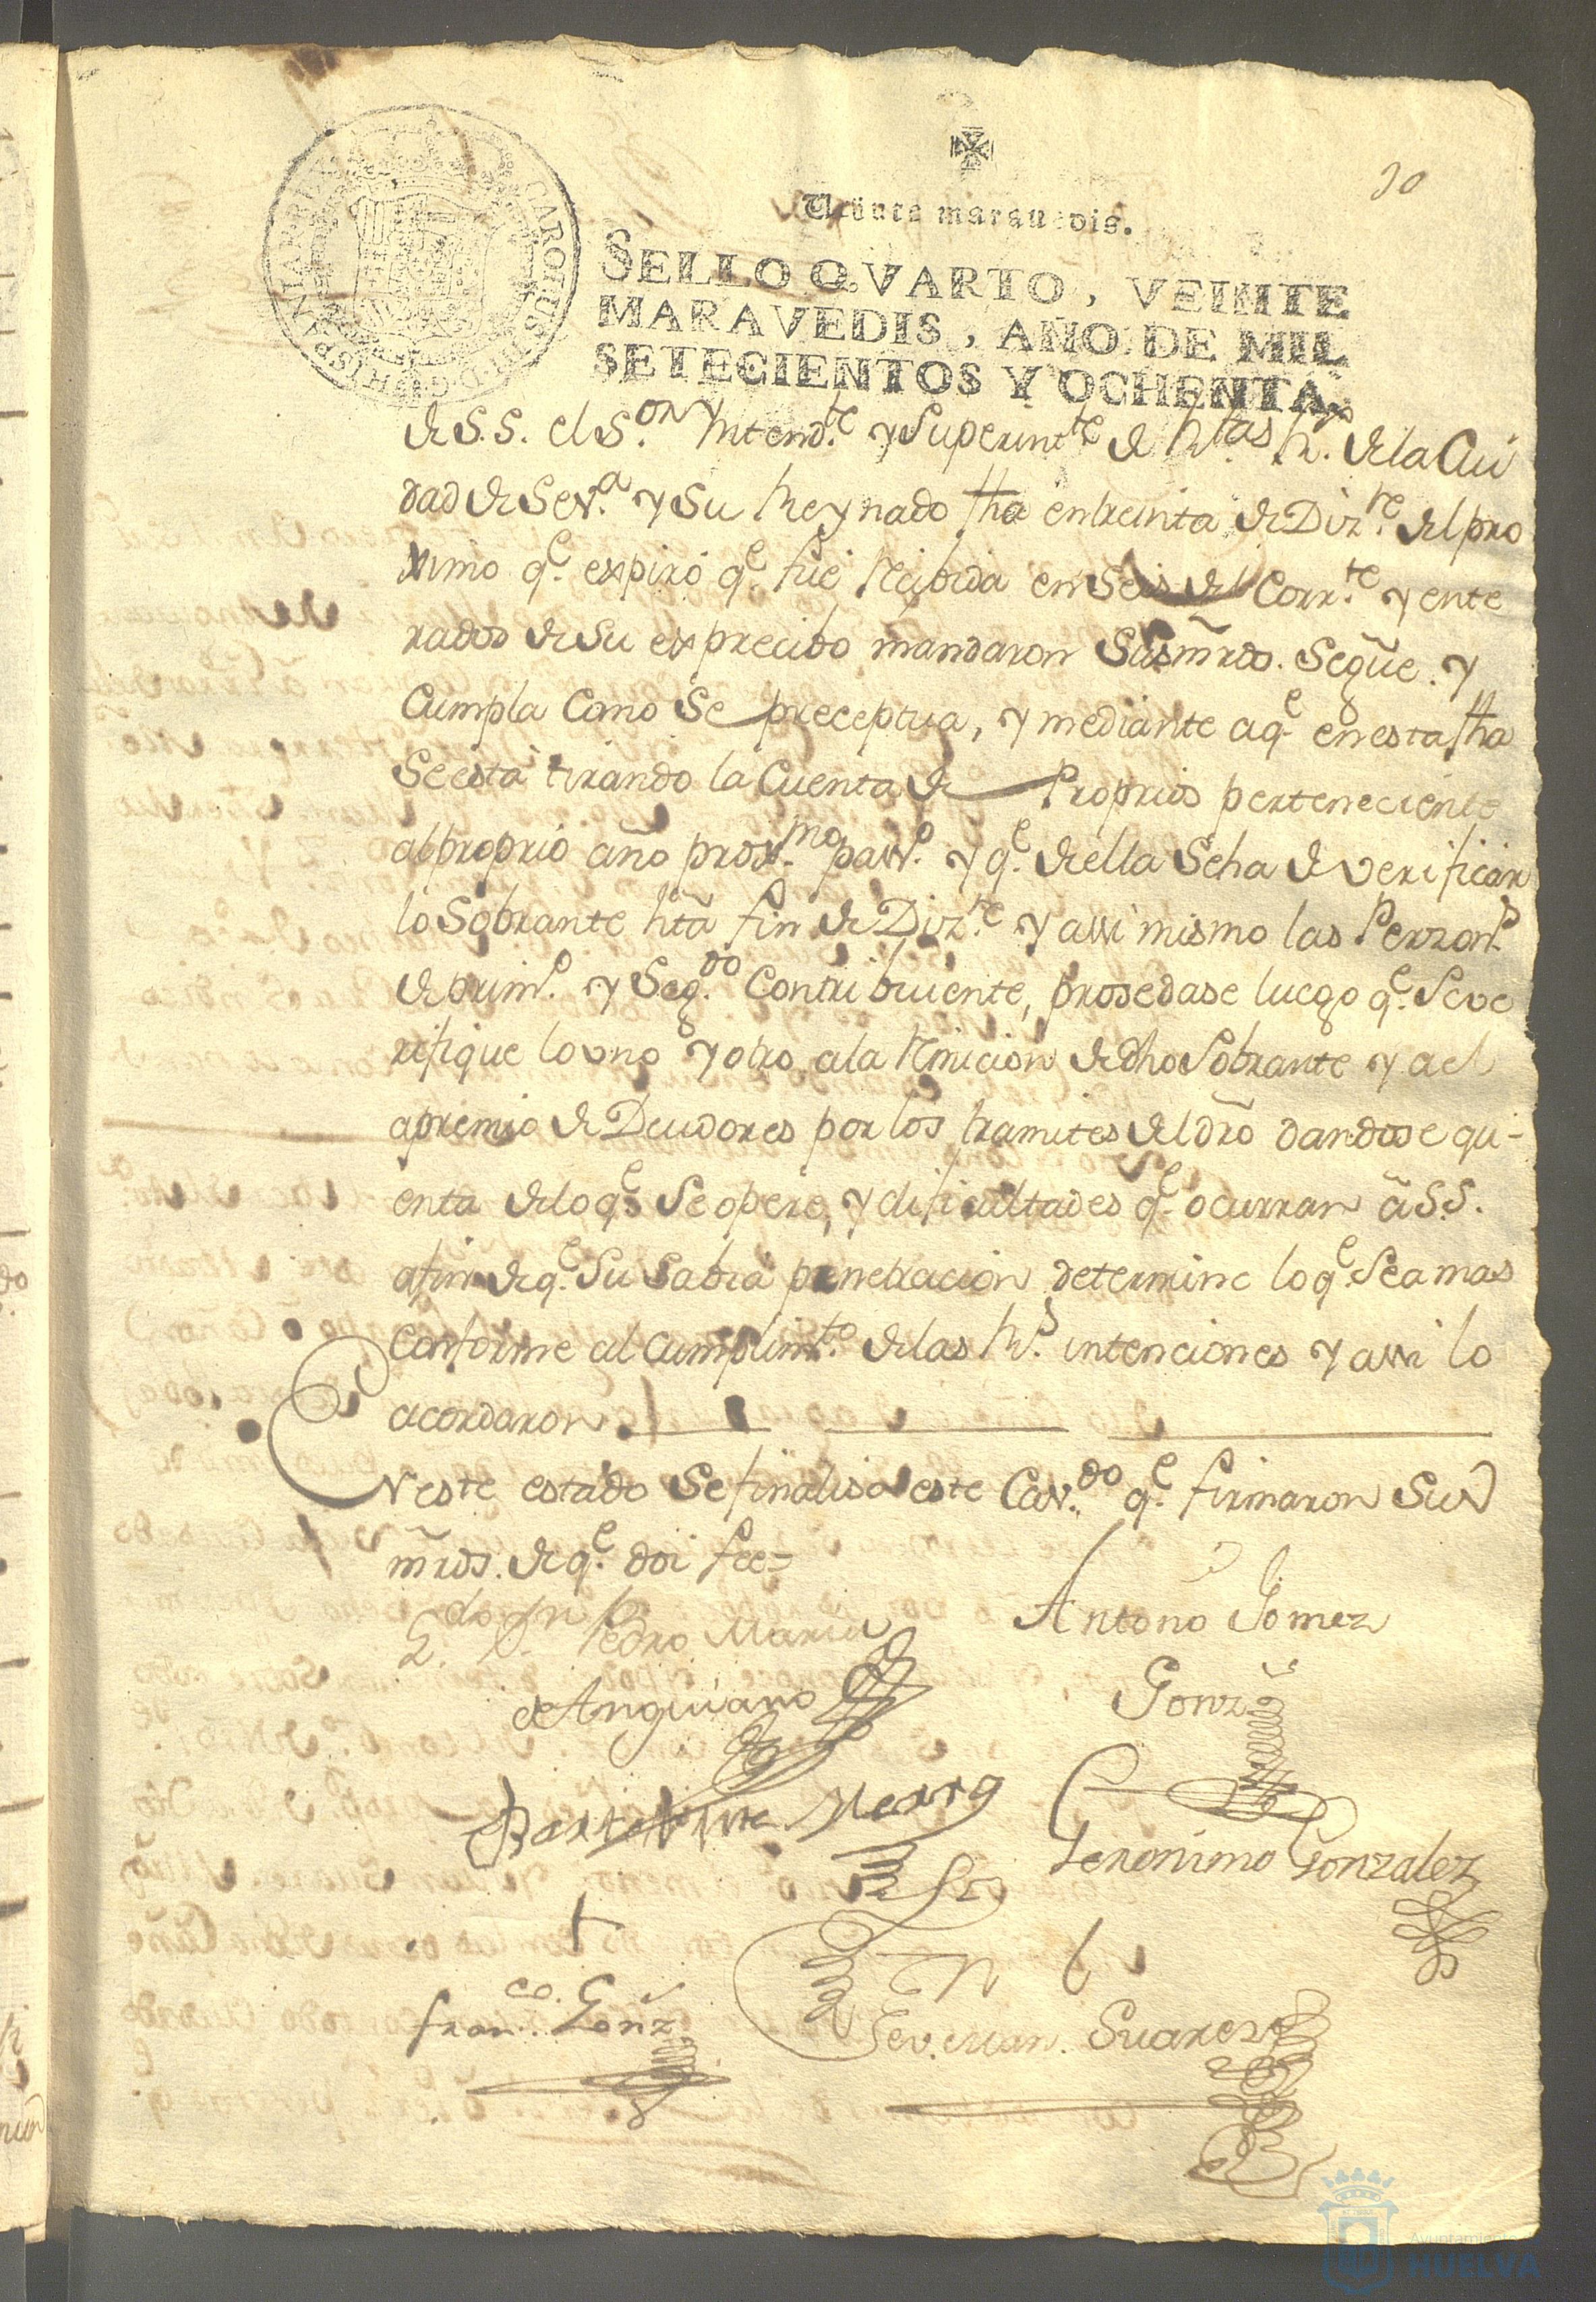 30
Veinte maravedis.
SELLO QVARTO, VEINTE
MARAVEDIS, AÑO DE MIL
SETECIENTOS Y OCHENTA.
CAROLUS III D G HISPANIAR
de S.S. el S.or Intend.te y Superint.te de R.tas R.s de la Ciu
dad de Sev.a y su Reynado fha en treinta de Diz.re del pro
ximo q.e expiró q.e fué recibida en Seis del Corr.te y ente
rados de su exprecibo mandaron Sus mrds. Se gue. y
Cumpla Como Se preceptua, y mediante a q.e en esta fha
Se está tirando la Cuenta de Proprios perteneciente
al proprio año prox.mo pass.o y q.e de ella Se ha de verificar
lo Sobrante hta fin de Diz.re y assi mismo las Perzon.s
de prim.o y Seg.do Contribuiente, prosedase luego q.e Se ve
rifique lo uno y otro a la remicion de dho Sobrante y a el
apremio de Deudores por los tramites del dro dandose qu-
enta de lo q.e Se opere, y dificultades q.e ocurran a S.S.
a fin de q.e Su Sabia penetracion determine lo q.e Sea mas
Conforme al Cumplim.to de las R.s intenciones y assi lo
acordaron
En este estado Se finalisó este Cav.do q.e firmaron Sus
mrds. de q.e doi fee=
Pedro Maria
de Anguiano
Antonio Gomez
Gonz
Geronimo Gonzalez
Fran.co Gonz
Suarez
Ayuntamiento
HUELVA